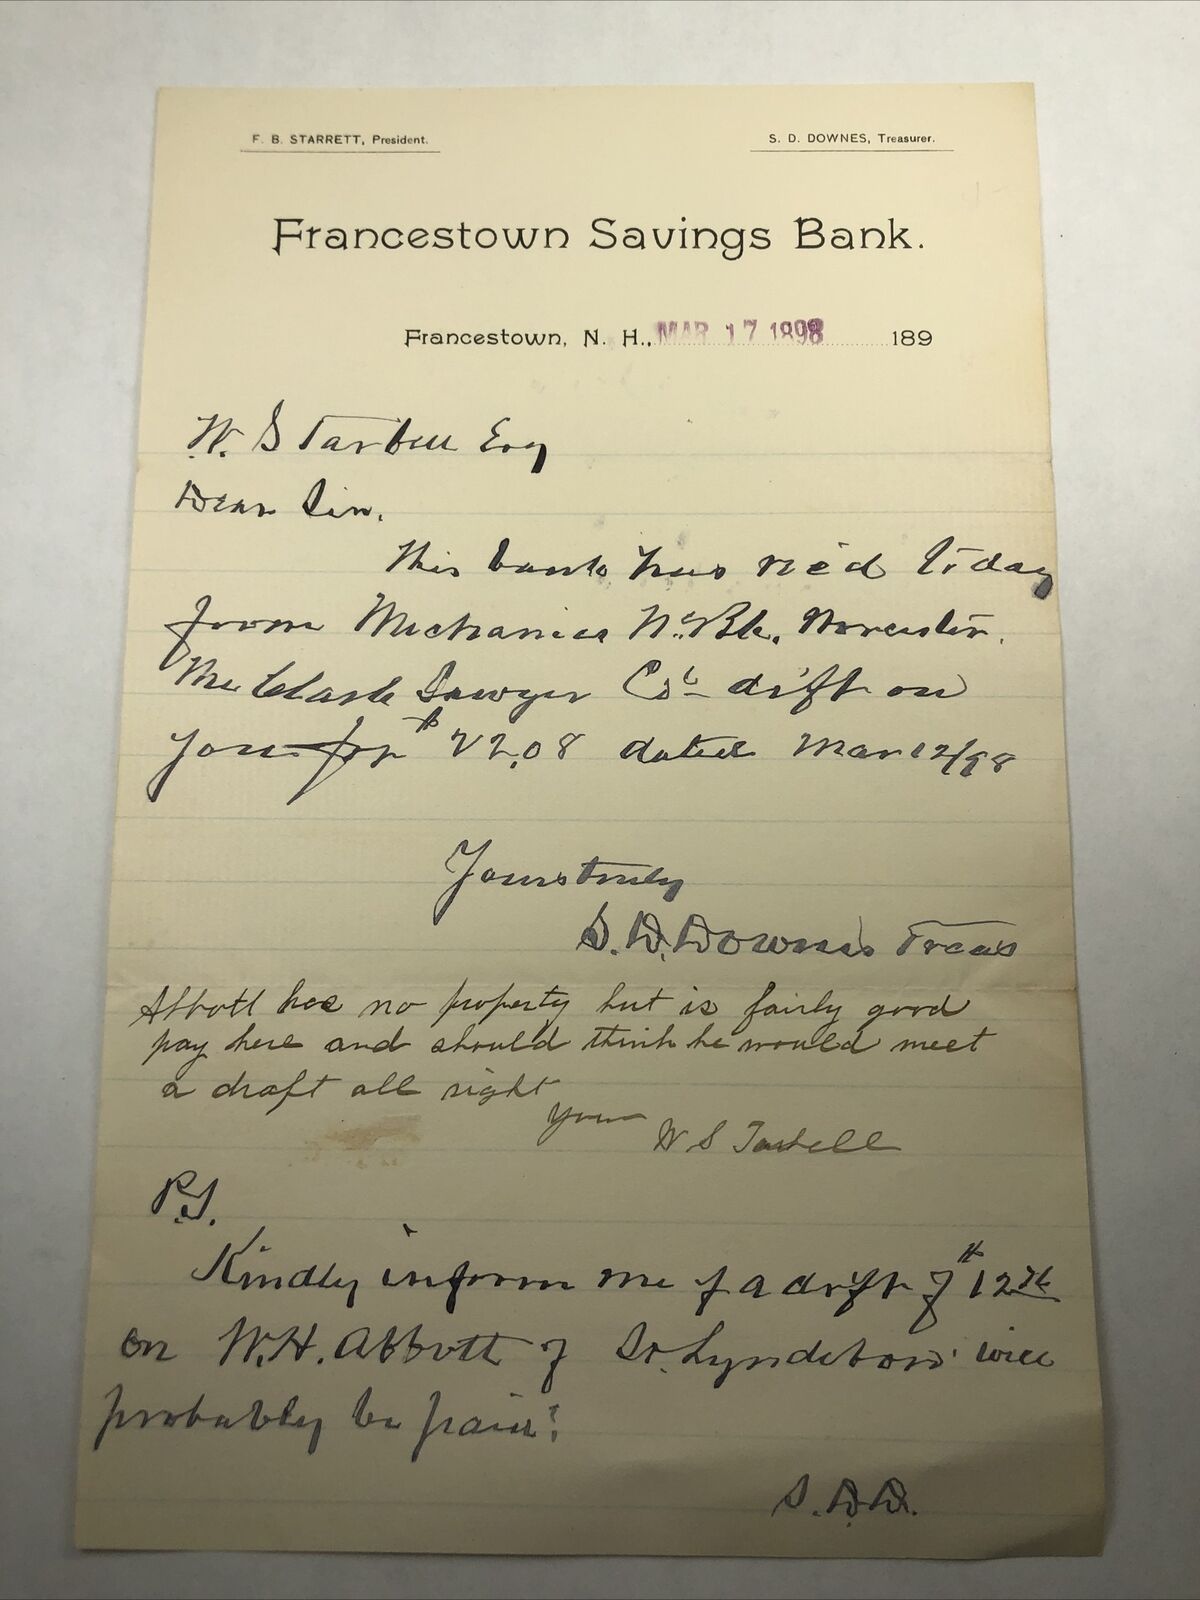 F. B. STARRETT, President.
S. D. DOWNES, Treasurer.
Francestown Savings Bank.
Francestown, N. H., MAR 17 1898 189
W. S Tarbell Esq
Dear Sir.
This bank has rec'd today
from Mechanics N. Bk. Worcester.
The Clark Sawyer Co drft on
you for $22.08 dated Mar 12/98
Yours truly
S. D. Downes Treas
Abbott has no property but is fairly good
pay here and should think he would meet
a draft all right
Yours W S Tarbell
P.S.
Kindly inform me if a drft of $12
on W. H. Abbott of So. Lyndeboro will
probably be paid?
S. D. D.